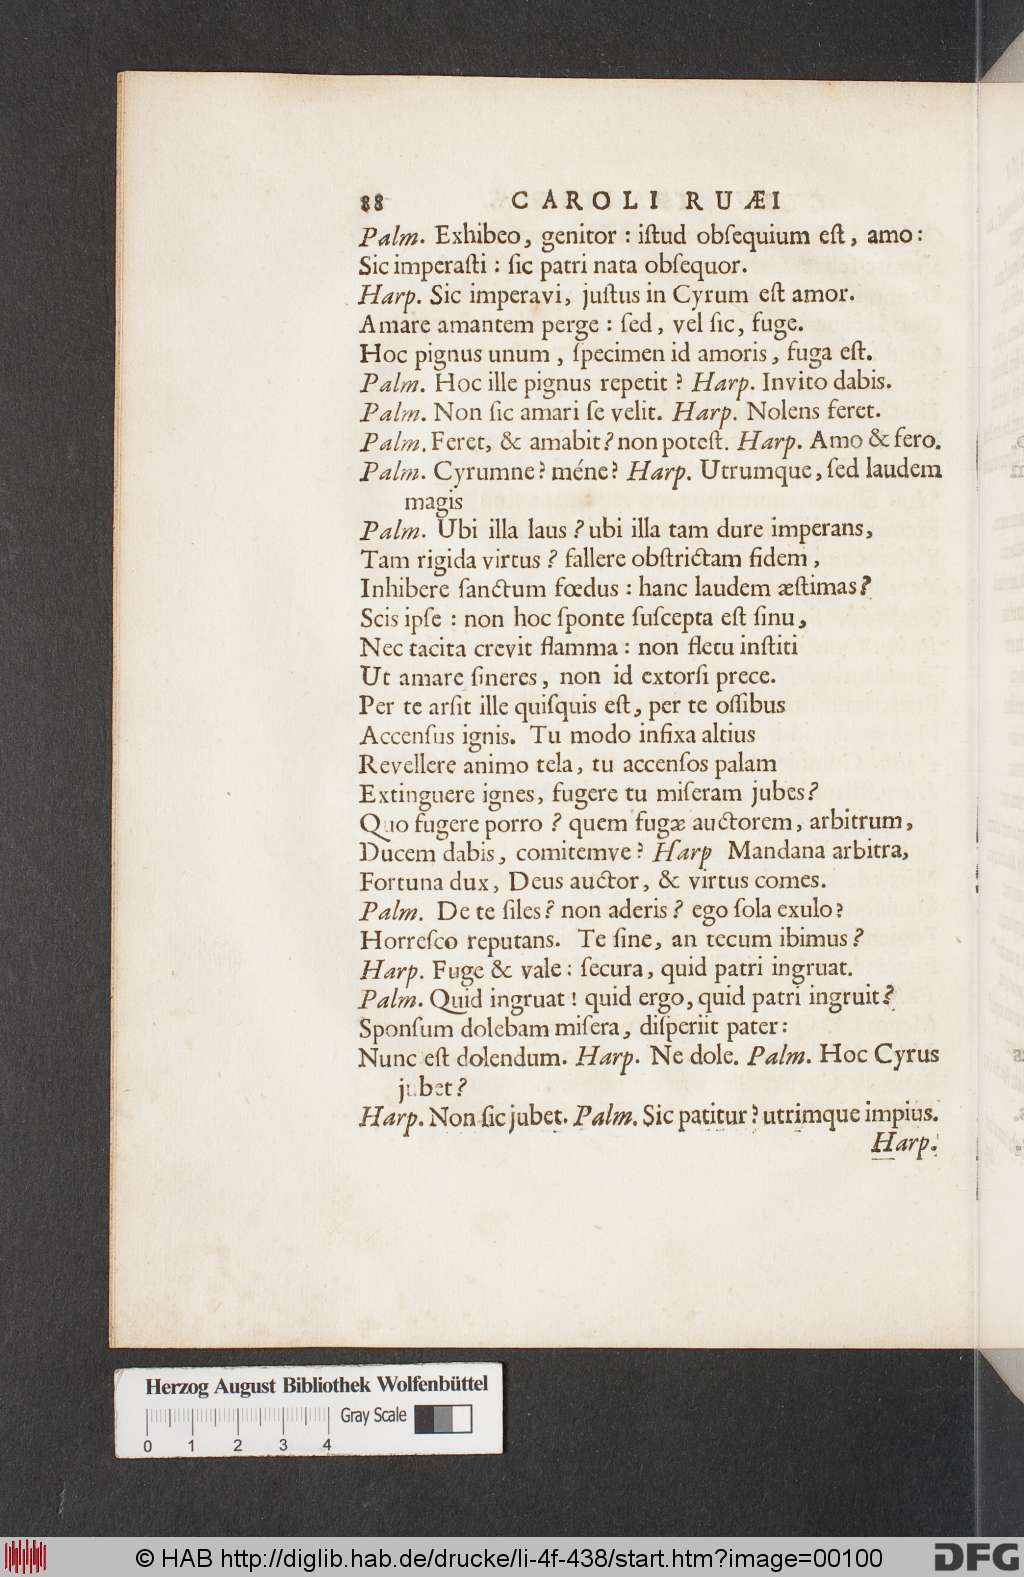 88 CAROLI RUÆI
Palm. Exhibeo, genitor : iſtud obſequium eſt, amo:
Sic imperaſti : ſic patri nata obſequor.
Harp. Sic imperavi, juſtus in Cyrum eſt amor.
Amare amantem perge : ſed, vel ſic, fuge.
Hoc pignus unum, ſpecimen id amoris, fuga eſt.
Palm. Hoc ille pignus repetit ? Harp. Invito dabis.
Palm. Non ſic amari ſe velit. Harp. Nolens feret.
Palm. Feret, & amabit? non poteſt. Harp. Amo & fero.
Palm. Cyrumne? méne? Harp. Utrumque, ſed laudem
magis
Palm. Ubi illa laus ? ubi illa tam dure imperans,
Tam rigida virtus ? fallere obſtrictam fidem,
Inhibere ſanctum fœdus : hanc laudem æſtimas?
Scis ipſe : non hoc ſponte ſuſcepta eſt ſinu,
Nec tacita crevit flamma : non fletu inſtiti
Ut amare ſineres, non id extorſi prece.
Per te arſit ille quiſquis eſt, per te oſſibus
Accenſus ignis. Tu modo infixa altius
Revellere animo tela, tu accenſos palam
Extinguere ignes, fugere tu miſeram jubes?
Quo fugere porro ? quem fugæ auctorem, arbitrum,
Ducem dabis, comitemve? Harp Mandana arbitra,
Fortuna dux, Deus auctor, & virtus comes.
Palm. De te ſiles? non aderis? ego ſola exulo?
Horreſco reputans. Te ſine, an tecum ibimus?
Harp. Fuge & vale : ſecura, quid patri ingruat.
Palm. Quid ingruat! quid ergo, quid patri ingruit?
Sponſum dolebam miſera, diſperiit pater:
Nunc eſt dolendum. Harp. Ne dole. Palm. Hoc Cyrus
jubet?
Harp. Non ſic jubet. Palm. Sic patitur? utrimque impius.
Harp.
Herzog August Bibliothek Wolfenbüttel
Gray Scale
0 1 2 3 4
© HAB http://diglib.hab.de/drucke/li-4f-438/start.htm?image=00100
DFG